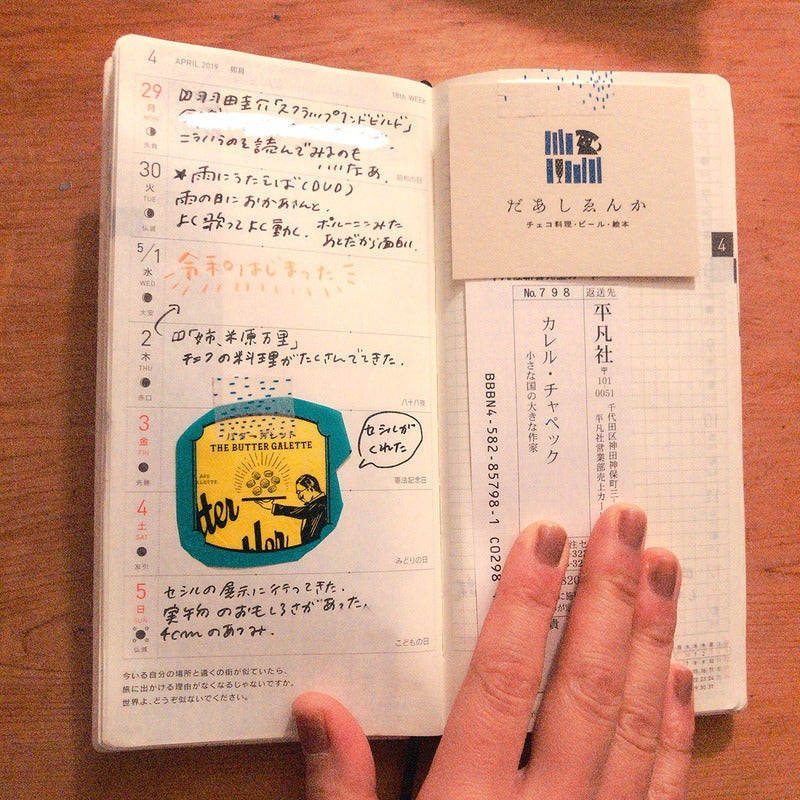 4 APRIL 2019 卯月
18th WEEK
29
月
MON
先負
羽田圭介「スクラップアンドビルド」
こういうのを読んでみるのも
いいなあ。
昭和の日
30
火
TUE
仏滅
★雨にうたえば(DVD)
雨の日におかあさんと。
よく歌ってよく動く。ポルーニンみた
あとだから面白い。
5/1
水
WED
大安
令和はじまった
2
木
THU
赤口
「姉、米原万里」
チェコの料理がたくさんでてきた。
八十八夜
3
金
FRI
先勝
バターガレット
THE BUTTER GALETTE
セシルが
くれた
憲法記念日
4
土
SAT
友引
みどりの日
5
日
SUN
仏滅
セシルの展示に行ってきた。
実物のおもしろさがあった。
4cmのあつみ。
こどもの日
今いる自分の場所と遠くの街が似ていたら、
旅に出かける理由がなくなるじゃないですか。
世界よ、どうぞ似ないでください。
だあしゑんか
チェコ料理・ビール・絵本
4
No.798
返送先
平凡社
〒101
0051
千代田区神田神保町三
平凡社営業部売上カー
カレル・チャペック
小さな国の大きな作家
BBBN4-582-85798-1 C0298